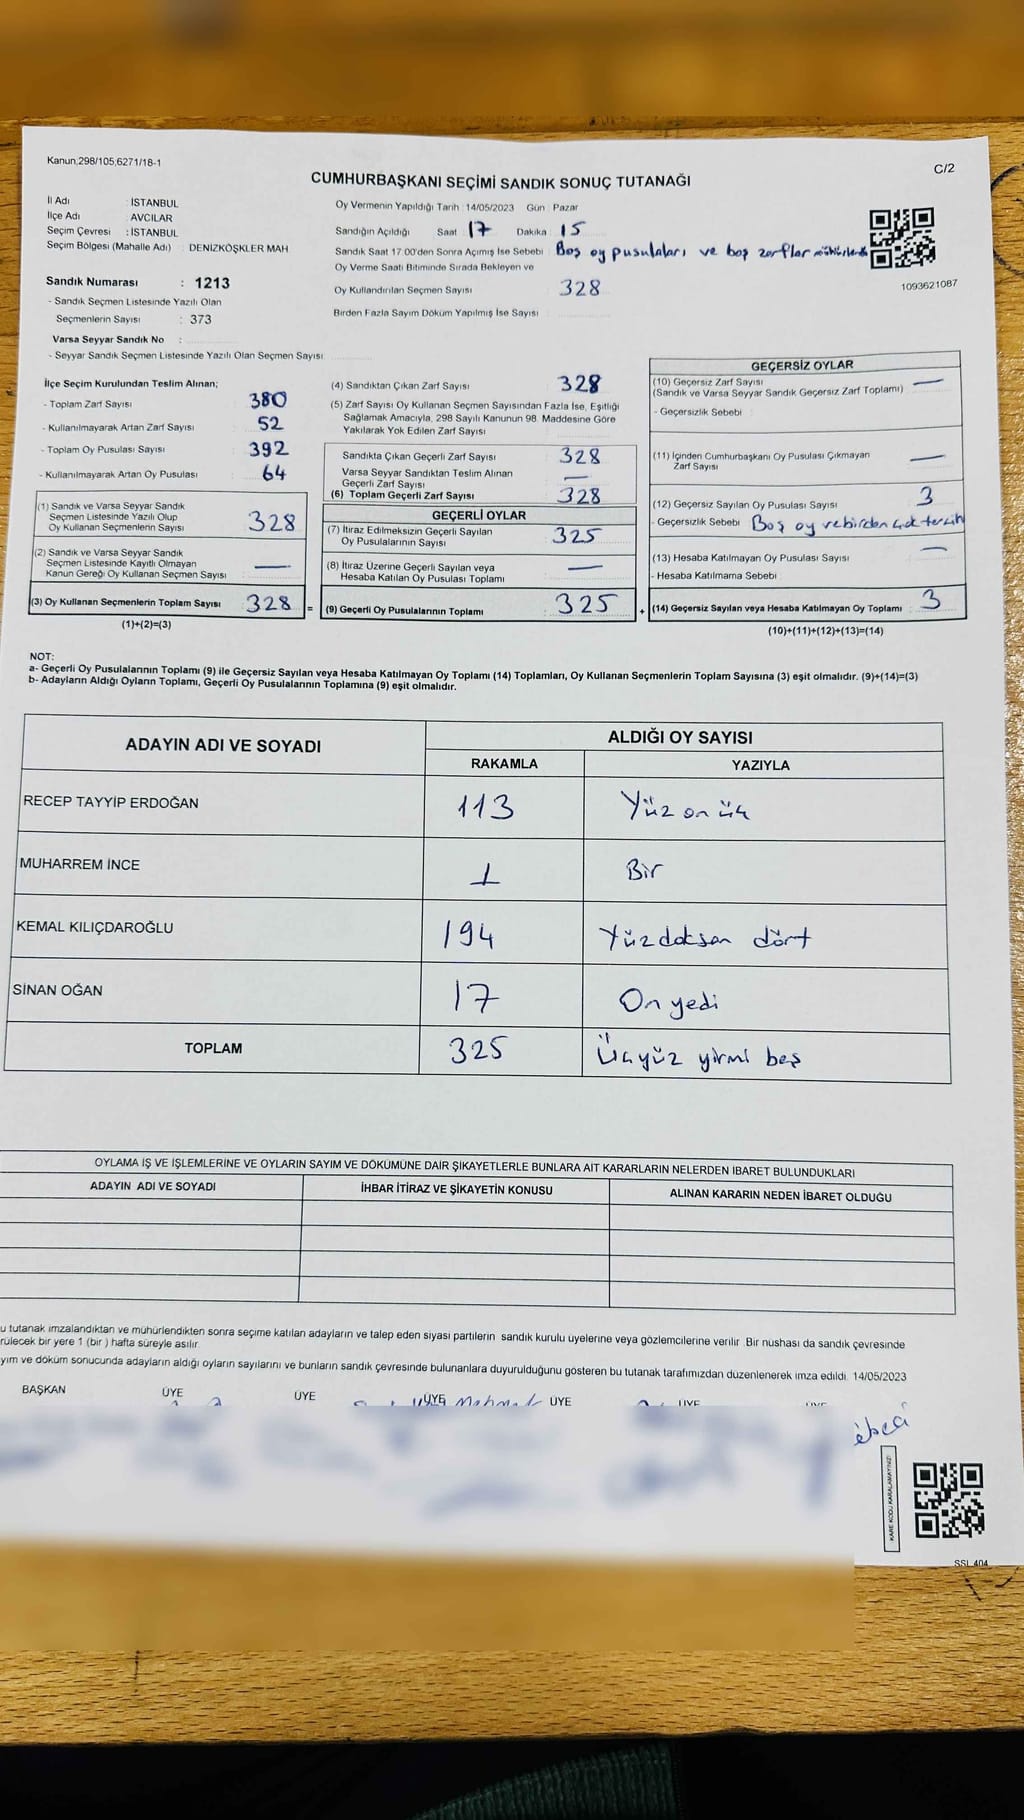 Kanun,298/105,6271/18-1
C/2
CUMHURBAŞKANI SEÇİMİ SANDIK SONUÇ TUTANAĞI
İl Adı : İSTANBUL
İlçe Adı : AVCILAR
Seçim Çevresi : İSTANBUL
Seçim Bölgesi (Mahalle Adı) : DENİZKÖŞKLER MAH
Sandık Numarası : 1213
- Sandık Seçmen Listesinde Yazılı Olan
Seçmenlerin Sayısı : 373
Varsa Seyyar Sandık No :
- Seyyar Sandık Seçmen Listesinde Yazılı Olan Seçmen Sayısı
Oy Vermenin Yapıldığı Tarih : 14/05/2023 Gün : Pazar
Sandığın Açıldığı Saat 17 Dakika 15
Sandık Saat 17:00'den Sonra Açımış İse Sebebi : Boş oy pusulaları ve boş zarflar
Oy Verme Saati Bitiminde Sırada Bekleyen ve
Oy Kullandırılan Seçmen Sayısı 328
Birden Fazla Sayım Döküm Yapılmış İse Sayısı
1093621087
İlçe Seçim Kurulundan Teslim Alınan;
- Toplam Zarf Sayısı : 380
- Kullanılmayarak Artan Zarf Sayısı : 52
- Toplam Oy Pusulası Sayısı : 392
- Kullanılmayarak Artan Oy Pusulası : 64
(1) Sandık ve Varsa Seyyar Sandık
Seçmen Listesinde Yazılı Olup
Oy Kullanan Seçmenlerin Sayısı 328
(2) Sandık ve Varsa Seyyar Sandık
Seçmen Listesinde Kayıtlı Olmayan
Kanun Gereği Oy Kullanan Seçmen Sayısı —
(3) Oy Kullanan Seçmenlerin Toplam Sayısı 328 =
(1)+(2)=(3)
(4) Sandıktan Çıkan Zarf Sayısı 328
(5) Zarf Sayısı Oy Kullanan Seçmen Sayısından Fazla İse, Eşitliği
Sağlamak Amacıyla, 298 Sayılı Kanunun 98. Maddesine Göre
Yakılarak Yok Edilen Zarf Sayısı
Sandıkta Çıkan Geçerli Zarf Sayısı 328
Varsa Seyyar Sandıktan Teslim Alınan
Geçerli Zarf Sayısı —
(6) Toplam Geçerli Zarf Sayısı 328
GEÇERLİ OYLAR
(7) İtiraz Edilmeksizin Geçerli Sayılan
Oy Pusulalarının Sayısı 325
(8) İtiraz Üzerine Geçerli Sayılan veya
Hesaba Katılan Oy Pusulası Toplamı —
(9) Geçerli Oy Pusulalarının Toplamı 325 +
GEÇERSİZ OYLAR
(10) Geçersiz Zarf Sayısı —
(Sandık ve Varsa Seyyar Sandık Geçersiz Zarf Toplamı)
- Geçersizlik Sebebi :
(11) İçinden Cumhurbaşkanı Oy Pusulası Çıkmayan —
Zarf Sayısı
(12) Geçersiz Sayılan Oy Pusulası Sayısı 3
- Geçersizlik Sebebi : Boş oy ve birden çok tercih
(13) Hesaba Katılmayan Oy Pusulası Sayısı —
- Hesaba Katılmama Sebebi :
(14) Geçersiz Sayılan veya Hesaba Katılmayan Oy Toplamı : 3
(10)+(11)+(12)+(13)=(14)
NOT:
a- Geçerli Oy Pusulalarının Toplamı (9) ile Geçersiz Sayılan veya Hesaba Katılmayan Oy Toplamı (14) Toplamları, Oy Kullanan Seçmenlerin Toplam Sayısına (3) eşit olmalıdır. (9)+(14)=(3)
b- Adayların Aldığı Oyların Toplamı, Geçerli Oy Pusulalarının Toplamına (9) eşit olmalıdır.
ADAYIN ADI VE SOYADI
ALDIĞI OY SAYISI
RAKAMLA YAZIYLA
RECEP TAYYİP ERDOĞAN 113 Yüz on üç
MUHARREM İNCE 1 Bir
KEMAL KILIÇDAROĞLU 194 Yüzdoksan dört
SİNAN OĞAN 17 On yedi
TOPLAM 325 Üçyüz yirmi beş
OYLAMA İŞ VE İŞLEMLERİNE VE OYLARIN SAYIM VE DÖKÜMÜNE DAİR ŞİKAYETLERLE BUNLARA AİT KARARLARIN NELERDEN İBARET BULUNDUKLARI
ADAYIN ADI VE SOYADI İHBAR İTİRAZ VE ŞİKAYETİN KONUSU ALINAN KARARIN NEDEN İBARET OLDUĞU
u tutanak imzalandıktan ve mühürlendikten sonra seçime katılan adayların ve talep eden siyasi partilerin sandık kurulu üyelerine veya gözlemcilerine verilir. Bir nüshası da sandık çevresinde
rülecek bir yere 1 (bir) hafta süreyle asılır.
yım ve döküm sonucunda adayların aldığı oyların sayılarını ve bunların sandık çevresinde bulunanlara duyurulduğunu gösteren bu tutanak tarafımızdan düzenlenerek imza edildi. 14/05/2023
BAŞKAN ÜYE ÜYE ÜYE ÜYE ÜYE
KARE KODU KARALAMAYINIZ!
SSL 404